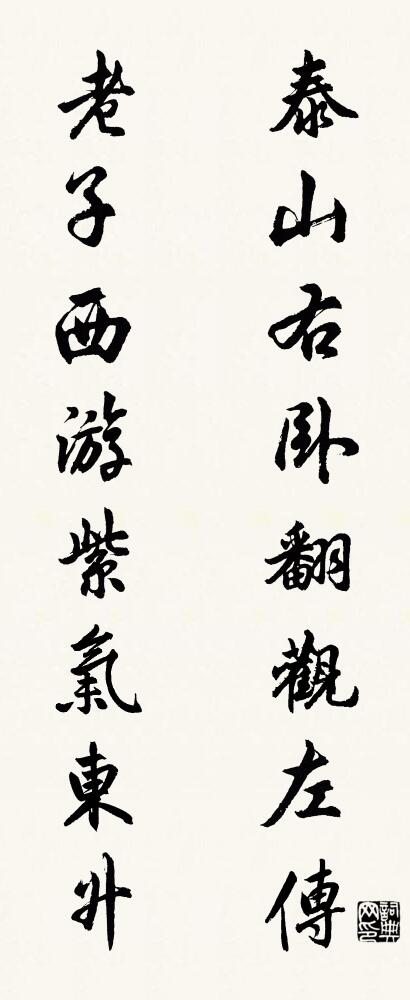 泰山右卧翻觀左傳
老子西游紫氣東升